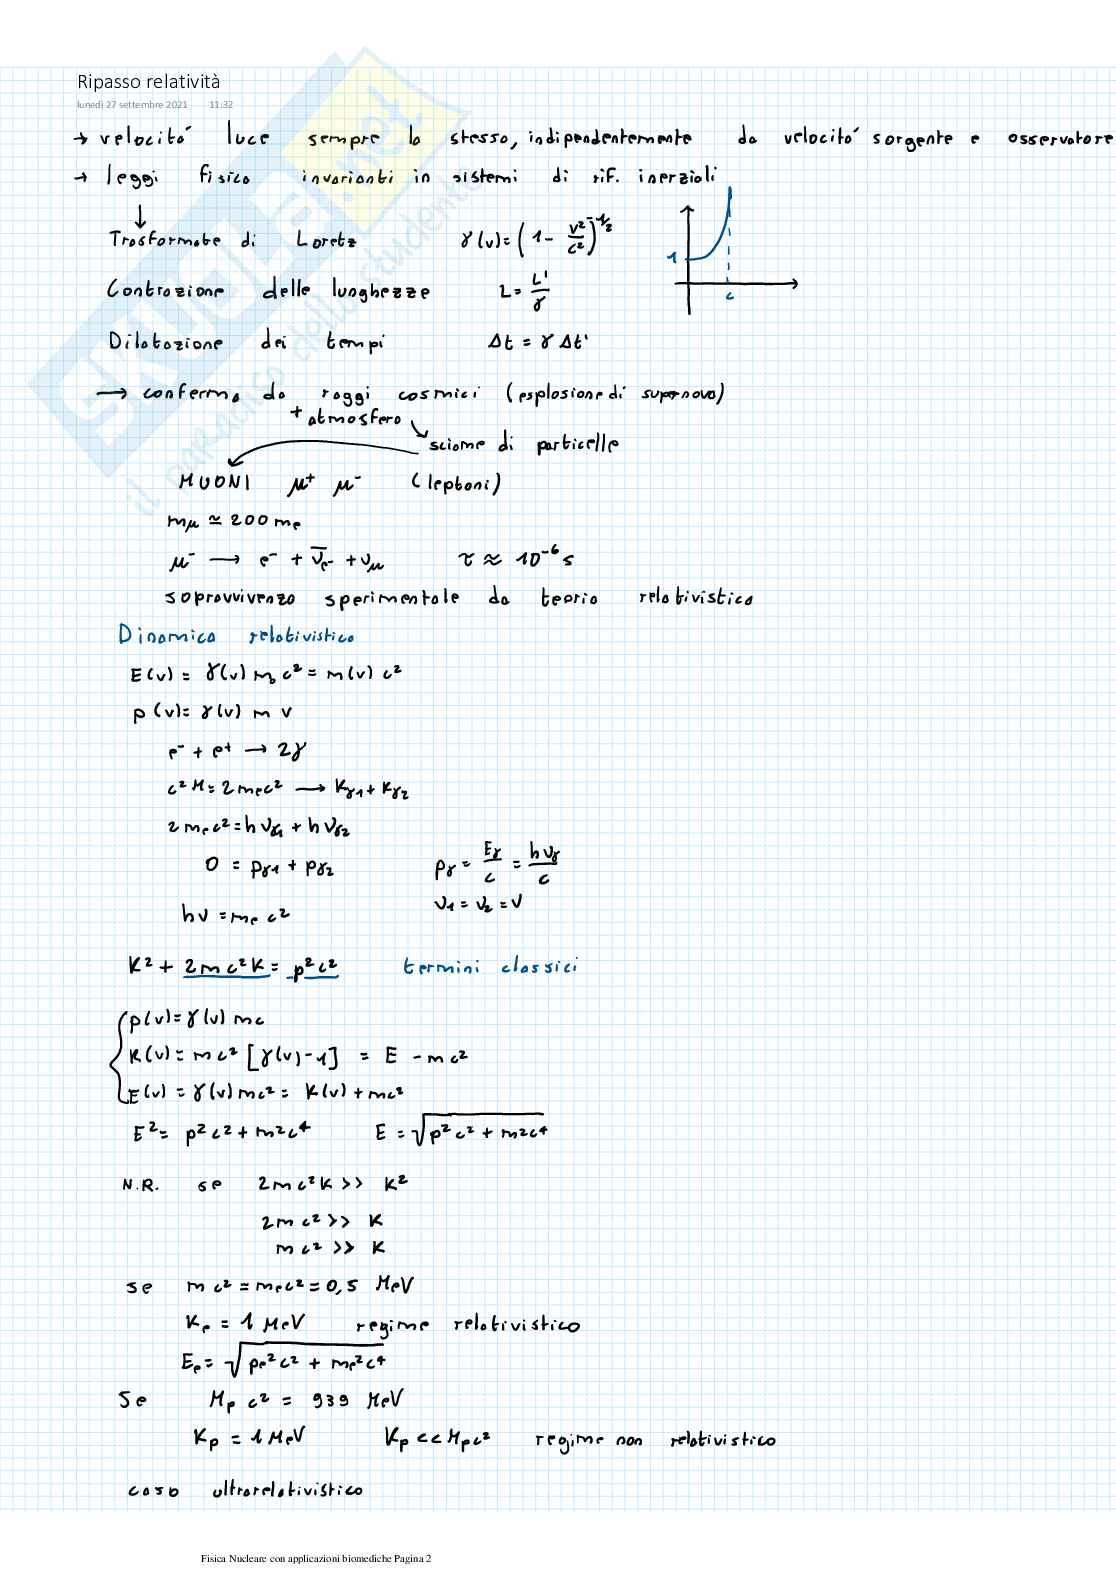 Ripasso relatività
lunedì 27 settembre 2021 11:32
→ velocità luce sempre la stessa, indipendentemente da velocità sorgente e osservatore
→ leggi fisica invarianti in sistemi di rif. inerziali
↓
Trasformate di Loretz γ(v) = (1 - v²/c²)^-1/2
1
c
Contrazione delle lunghezze L = L'/γ
Dilatazione dei tempi Δt = γ Δt'
→ conferma da raggi cosmici (esplosione di supernova)
+ atmosfera
sciame di particelle
MUONI μ⁺ μ⁻ (leptoni)
mμ ≃ 200 me
μ⁻ → e⁻ + ν̄e⁻ + νμ τ ≈ 10⁻⁶ s
sopravvivenza sperimentale da teoria relativistica
Dinamica relativistica
E(v) = γ(v) m₀ c² = m(v) c²
p(v) = γ(v) m v
e⁻ + e⁺ → 2γ
c² M = 2 me c² → Kγ1 + Kγ2
2 me c² = h νγ1 + h νγ2
0 = pγ1 + pγ2 pγ = Eγ/c = hνγ/c
ν1 = ν2 = ν
hν = me c²
K² + 2mc²K = p²c² termini classici
p(v) = γ(v) mc
K(v) = mc² [γ(v) - 1] = E - mc²
E(v) = γ(v) mc² = K(v) + mc²
E² = p²c² + m²c⁴ E = √(p²c² + m²c⁴)
N.R. se 2mc²K >> K²
2mc² >> K
mc² >> K
se mc² = mec² = 0,5 MeV
Ke = 1 MeV regime relativistico
Ee = √(pe²c² + me²c⁴)
Se Mp c² = 939 MeV
Kp = 1 MeV Kp << Mpc² regime non relativistico
caso ultrarelativistico
Fisica Nucleare con applicazioni biomediche Pagina 2
SKUOLA.net
il paradiso dello studente